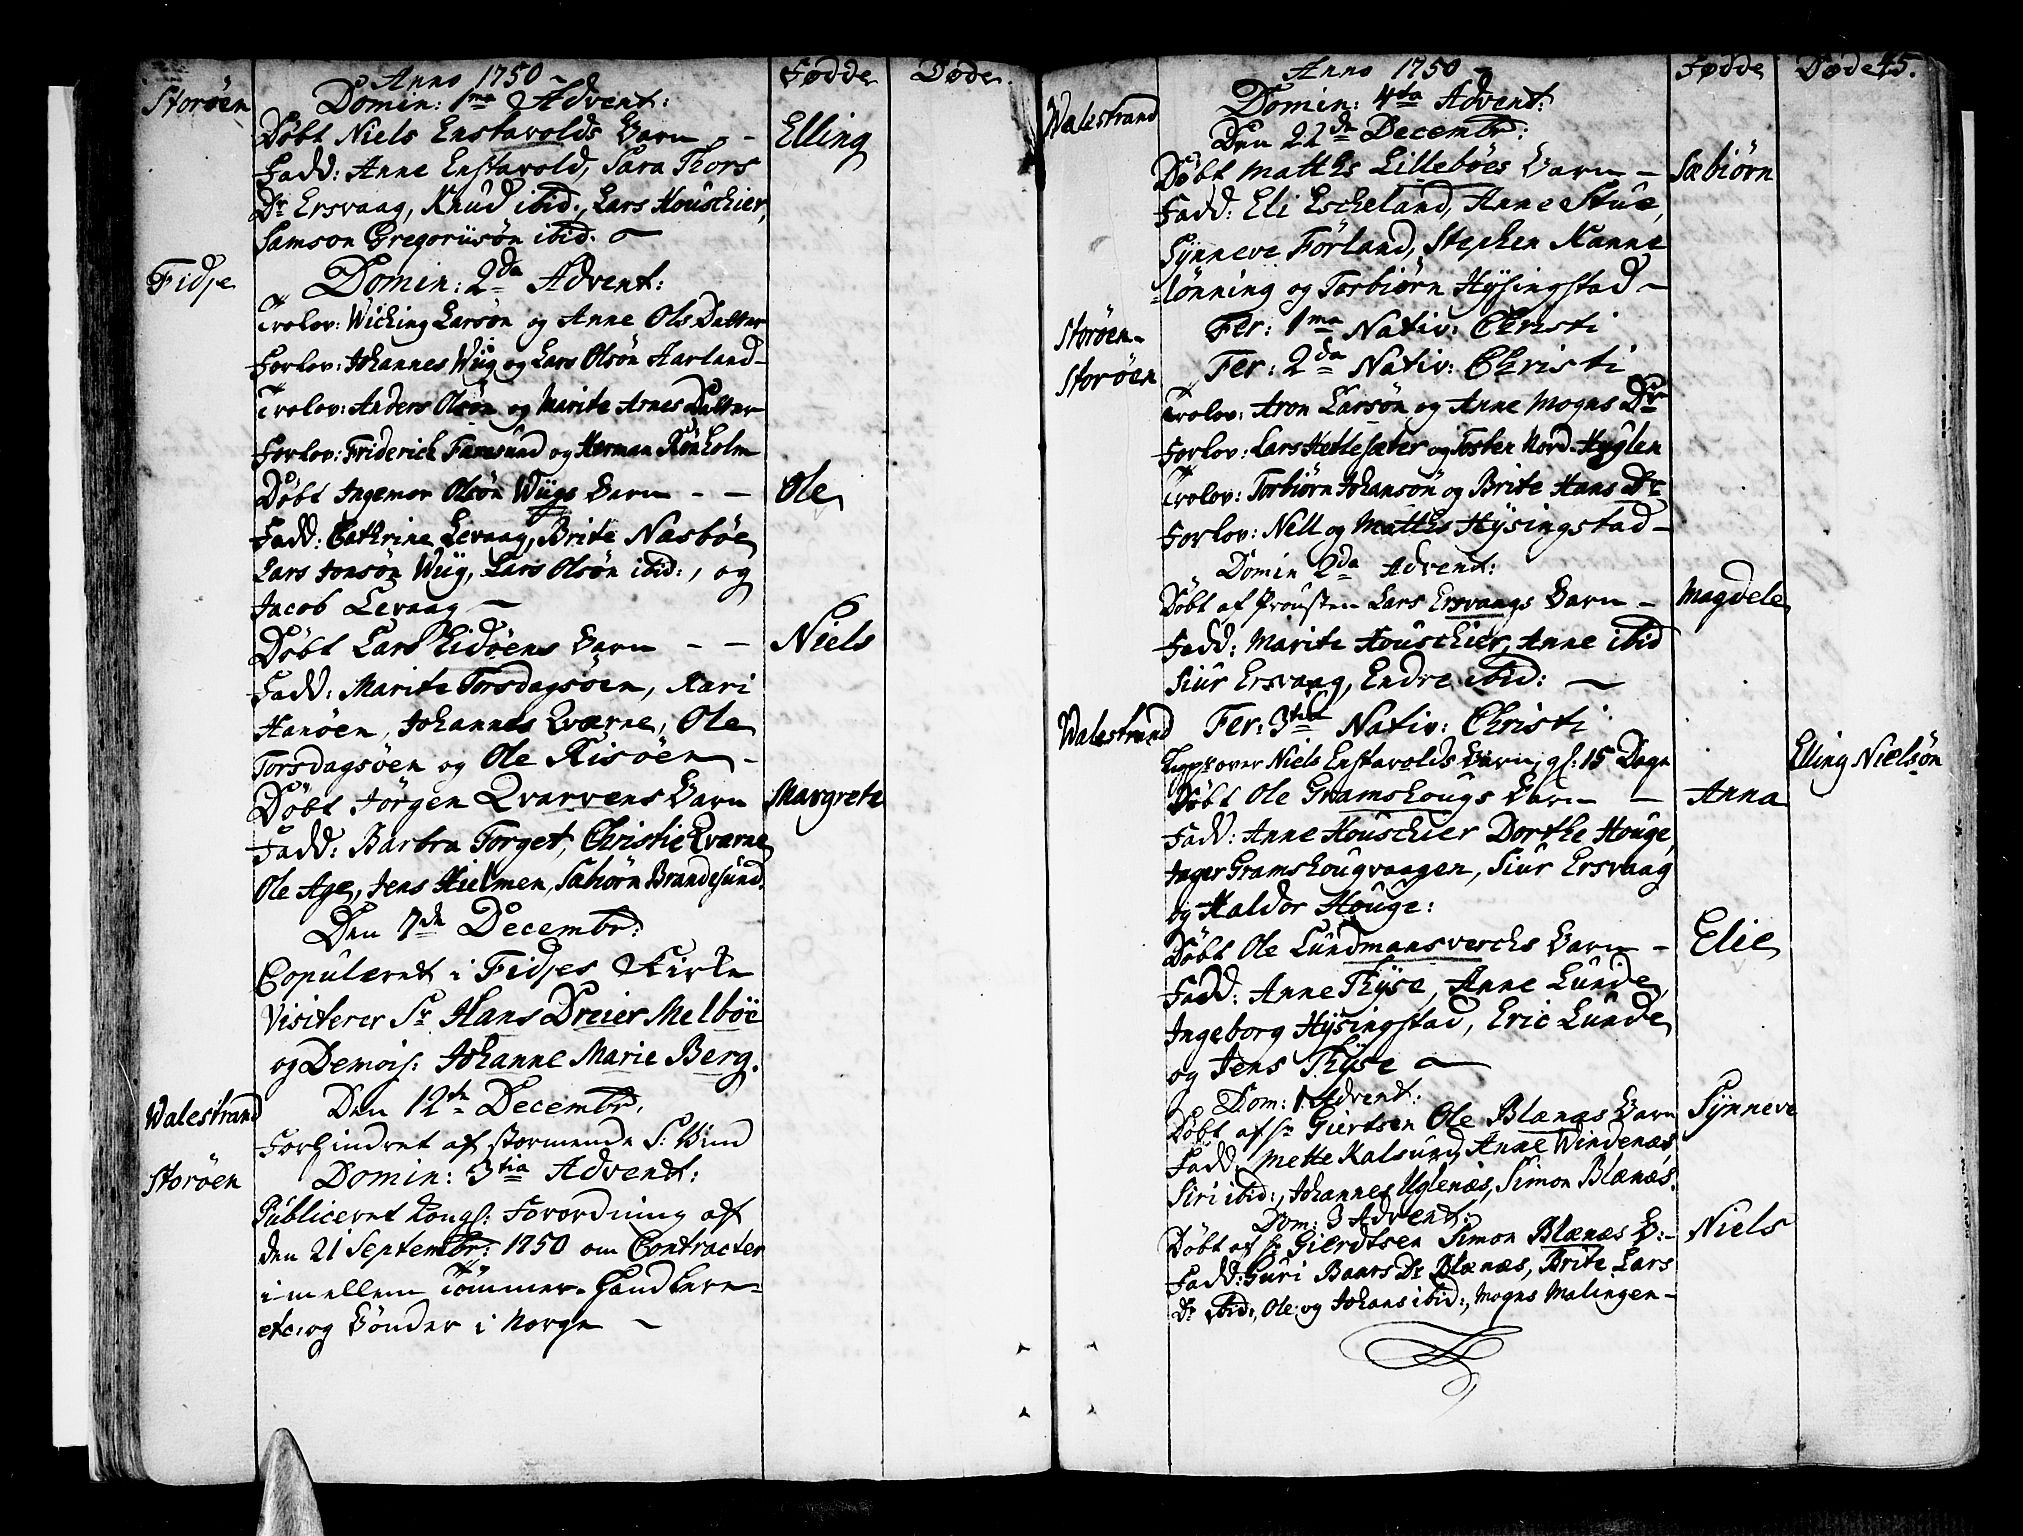 Anno 1750
Fødde
Døde
Storøen
Domin: 1ma Advent:
Døbt Niels Enstavolds Barn - -
Elling
Fadd: Anne Enstavold, Sara Thors
Dr Ersvaag, Knud ibid., Lars Houschier,
Samson Gregoriisøn ibid.
Fidje
Domin: 2da Advent:
Trolov: Wiching Larsøn og Anne Ols Datter
Forlov: Johannes Wiig og Lars Olsøn Aarland
Trolov: Anders Olsøn og Marite Arnes Datter
Forlov: Friderich Faresund og Herman Rønholm
Døbt Ingemar Olsøn Wiigs Barn - -
Ole
Fadd: Cathrine Levaag, Brite Næsbøe
Lars Jonsøn Wiig, Lars Olsøn ibid:, og
Jacob Levaag
Døbt Lars Eidøens Barn - -
Niels
Fadd: Marite Torsdagsøen, Kari
Hanøen, Johannes Qværne, Ole
Torsdagsøen og Ole Risøen
Døbt Jørgen Qvarvens Barn
Margrete
Fadd: Barbra Torget, Christie Qværne
Ole Age, Jens Hielmen, Sæbiørn Brandesund.
Den 7de Decembr:
Copuleret i Fidjes Kirke
Visiterer Sr Hans Dreier Melbøe
og Demois: Johanne Marie Berg.
Walestrand
Den 12te Decembr.
Forhindret af stormende S: Vind
Storøen
Domin: 3tia Advent:
Publiceret Kongl: Forordning af
den 21 Septembr: 1750 om Contracter
imellem Tømmer-Handlere
etc: og Bønder i Norge

Anno 1750
Fødde
Døde
45.
Walestrand
Domin: 4ta Advent:
Den 22de Decembr:
Døbt Matths Lillebøes Barn
Sæbiørn
Fadd: Eli Escheland, Anne Stue,
Synneve Førland, Stephen Nanne
=lønning og Torbiørn Hysingstad
Storøen
Fer: 1ma Nativ: Christi
Storøen
Fer: 2da Nativ: Christi
Trolov: Aron Larsøn og Anne Mogns Dr
Forlov: Lars Hettesæter og Tosten Nord-Hyglen
Trolov: Torbiørn Johansøn og Brite Hans Dr
Forlov: Nell og Matths Hysingstad
Domin 2da Advent:
Døbt af Prousten Lars Ersvaags Barn
Magdele
Fadd: Marite Houschier, Anne ibid
Siur Ersvaag, Endre ibid:
Walestrand
Fer: 3tia Nativ: Christi
over Niels Enstavolds Barn, gl: 15 Dage
Elling Nielsøn
Døbt Ole Gramshougs Barn
Anna
Fadd: Anne Houschier Dorthe Houge,
Inger Gramshougvaagen, Siur Ersvaag
og Haldor Houge:
Døbt Ole Lundmansverchs Barn
Elie
Fadd: Anne Thyse, Anne Lunde,
Ingeborg Hysingstad, Eric Lunde
og Jens Thyse
Dom: 1 Advent:
Døbt af Hr Giertsen Ole Blænæs Barn
Synneve
Fadd. Mette Kalsund, Anne Windenæs
Siri ibid:, Johannes Uglenæs, Simon Blænæs.
Dom: 3 Advent:
Døbt af Hr Gierdtsen Simon Blænæs B:
Niels
Fadd: Guri Baars Dr Blænæs, Brite Lars
Dr ibid:, Ole og Johans ibid:, Mogns Malingen